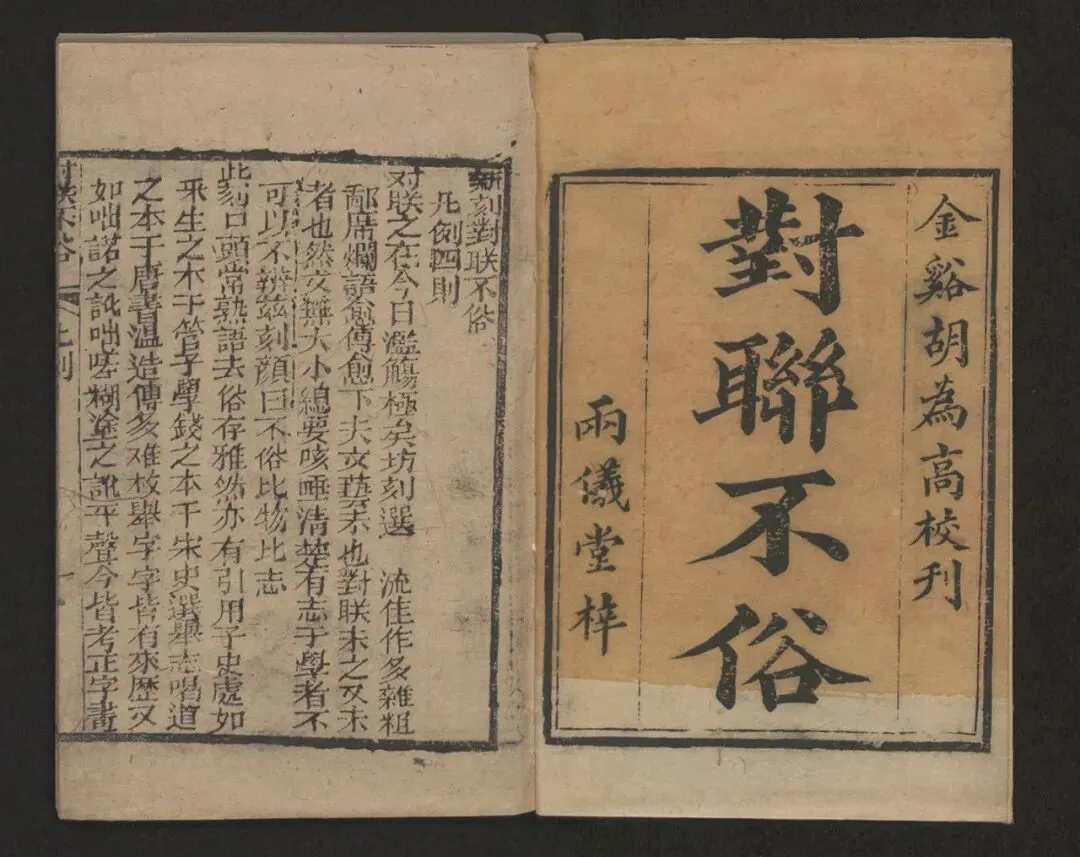 金谿胡為高校刊
對聯不俗
兩儀堂梓
新刻對联不俗
凡例四則
对联之在今日濫觴極矣坊刻選 流佳作多雜粗
鄙席爛語愈傳愈下夫文藝末也對联末之又末
者也然文無大小總要咳唾清楚有志于學者不
可以不辨玆刻顏曰不俗比物比志
此刻口頭常熟語去俗存雅然亦有引用子史處如
釆生之本于管子學錢之本于宋史選舉志唱道
之本于唐書溫造傳多难枚舉字字皆有來歷又
如咄諾之訛咄嗟糊塗之訛平聲今皆考正字畫
对联不俗 凡例 一